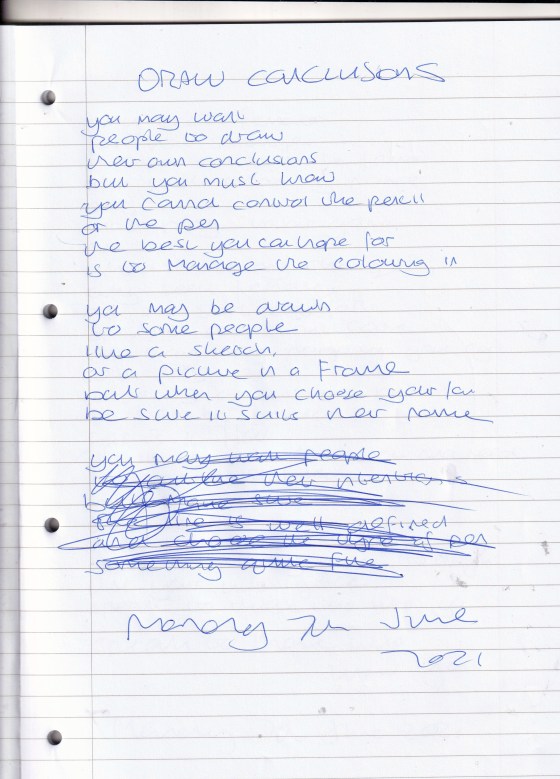 DRAW CONCLUSIONS
you may want
people to draw
their own conclusions
but you must know
you cannot control the pencil
or the pen
the best you can hope for
is to manage the colouring in
you may be drawn
to some people
like a sketch,
or a picture in a Frame
but when you choose your
be sure it suits their name
you may want people
their intentions
sure
the line is well defined
and choose the type of pen
something quite fine
Monday 7th June
2021